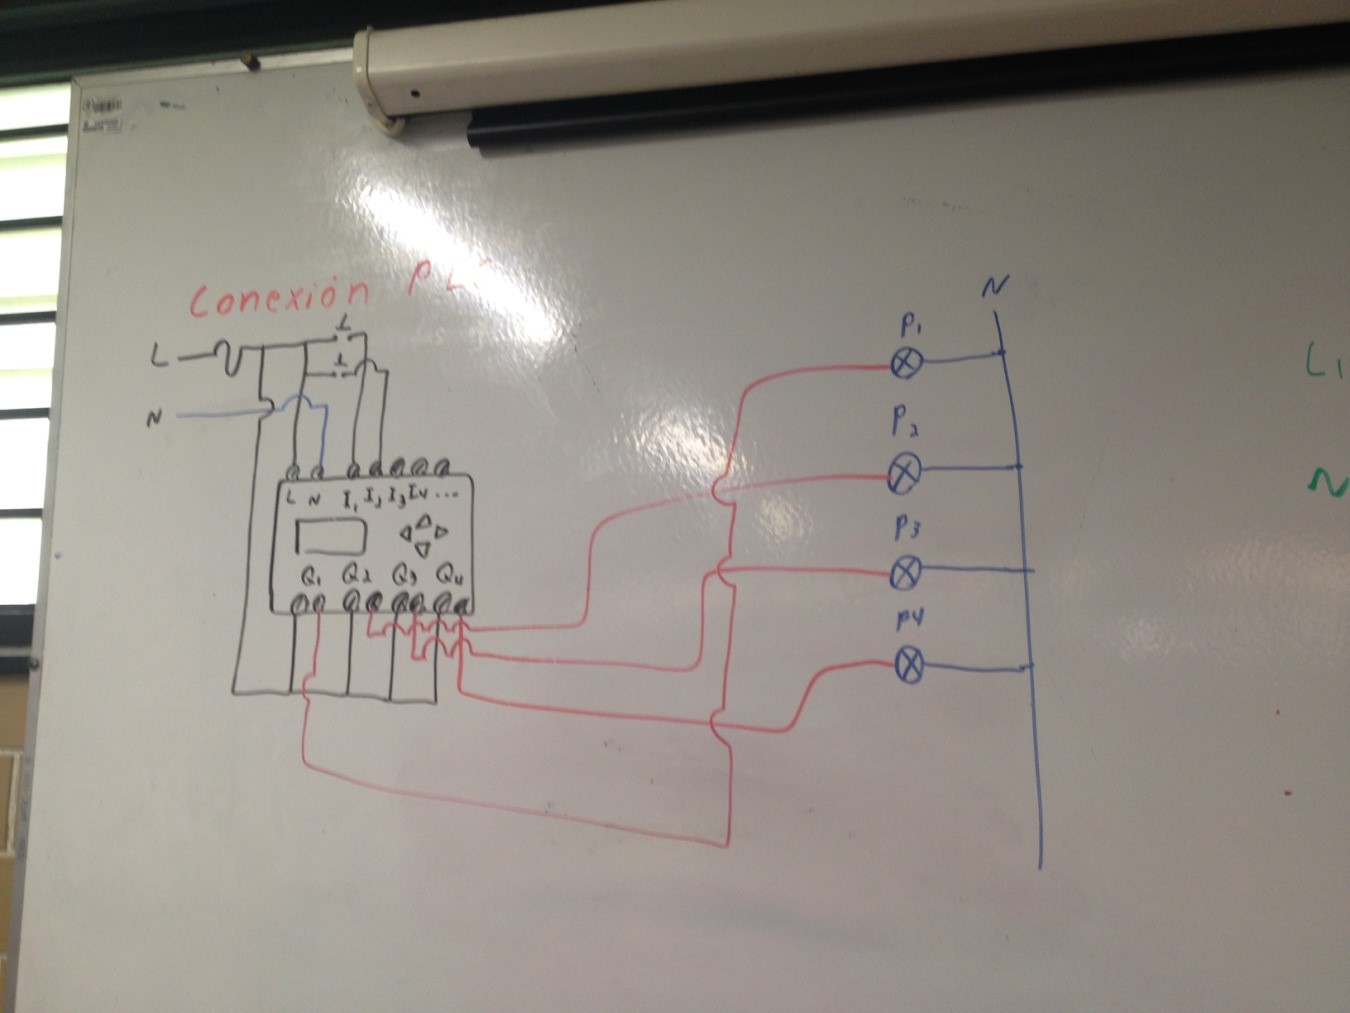 Conexión PLC
L
N
L N I1 I2 I3 I4 ...
Q1 Q2 Q3 Q4
N
P1
P2
P3
P4
L1
N